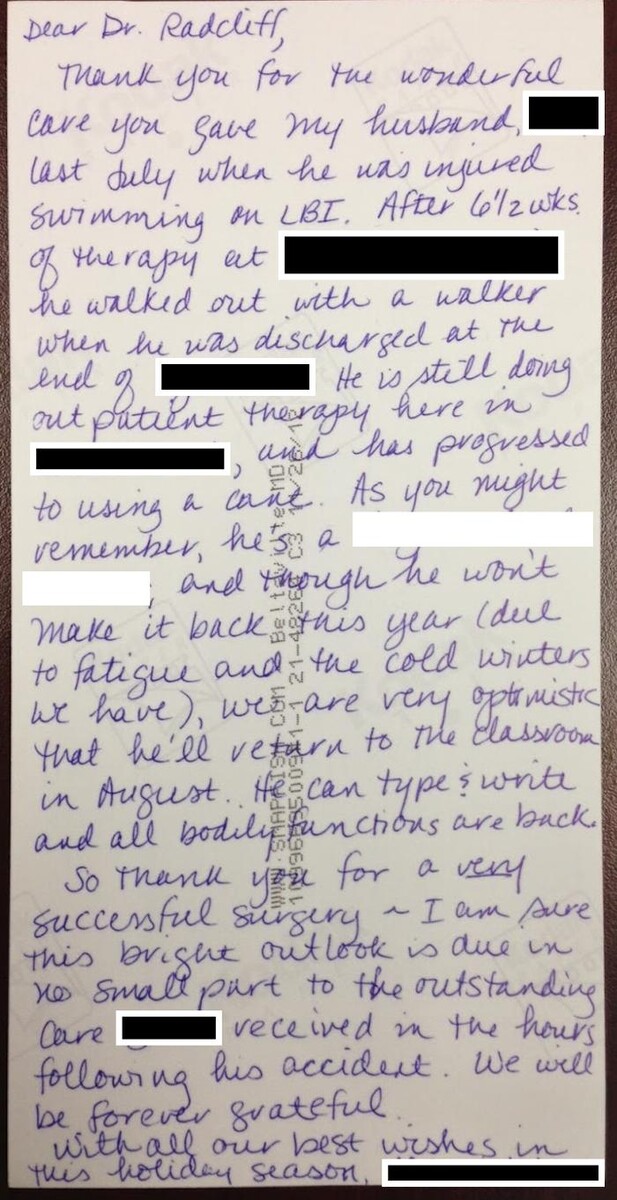 Dear Dr. Radcliff,
Thank you for the wonderful
care you gave my husband,
last July when he was injured
swimming on LBI. After 6 1/2 wks.
of therapy at
he walked out with a walker
when he was discharged at the
end of He is still doing
out patient therapy here in
, and has progressed
to using a cane. As you might
remember, he's a
, and though he won't
make it back this year (due
to fatigue and the cold winters
we have), we are very optimistic
that he'll return to the classroom
in August. He can type & write
and all bodily functions are back.
So thank you for a very
successful surgery ~ I am sure
this bright outlook is due in
no small part to the outstanding
care received in the hours
following his accident. We will
be forever grateful.
With all our best wishes in
this holiday season,